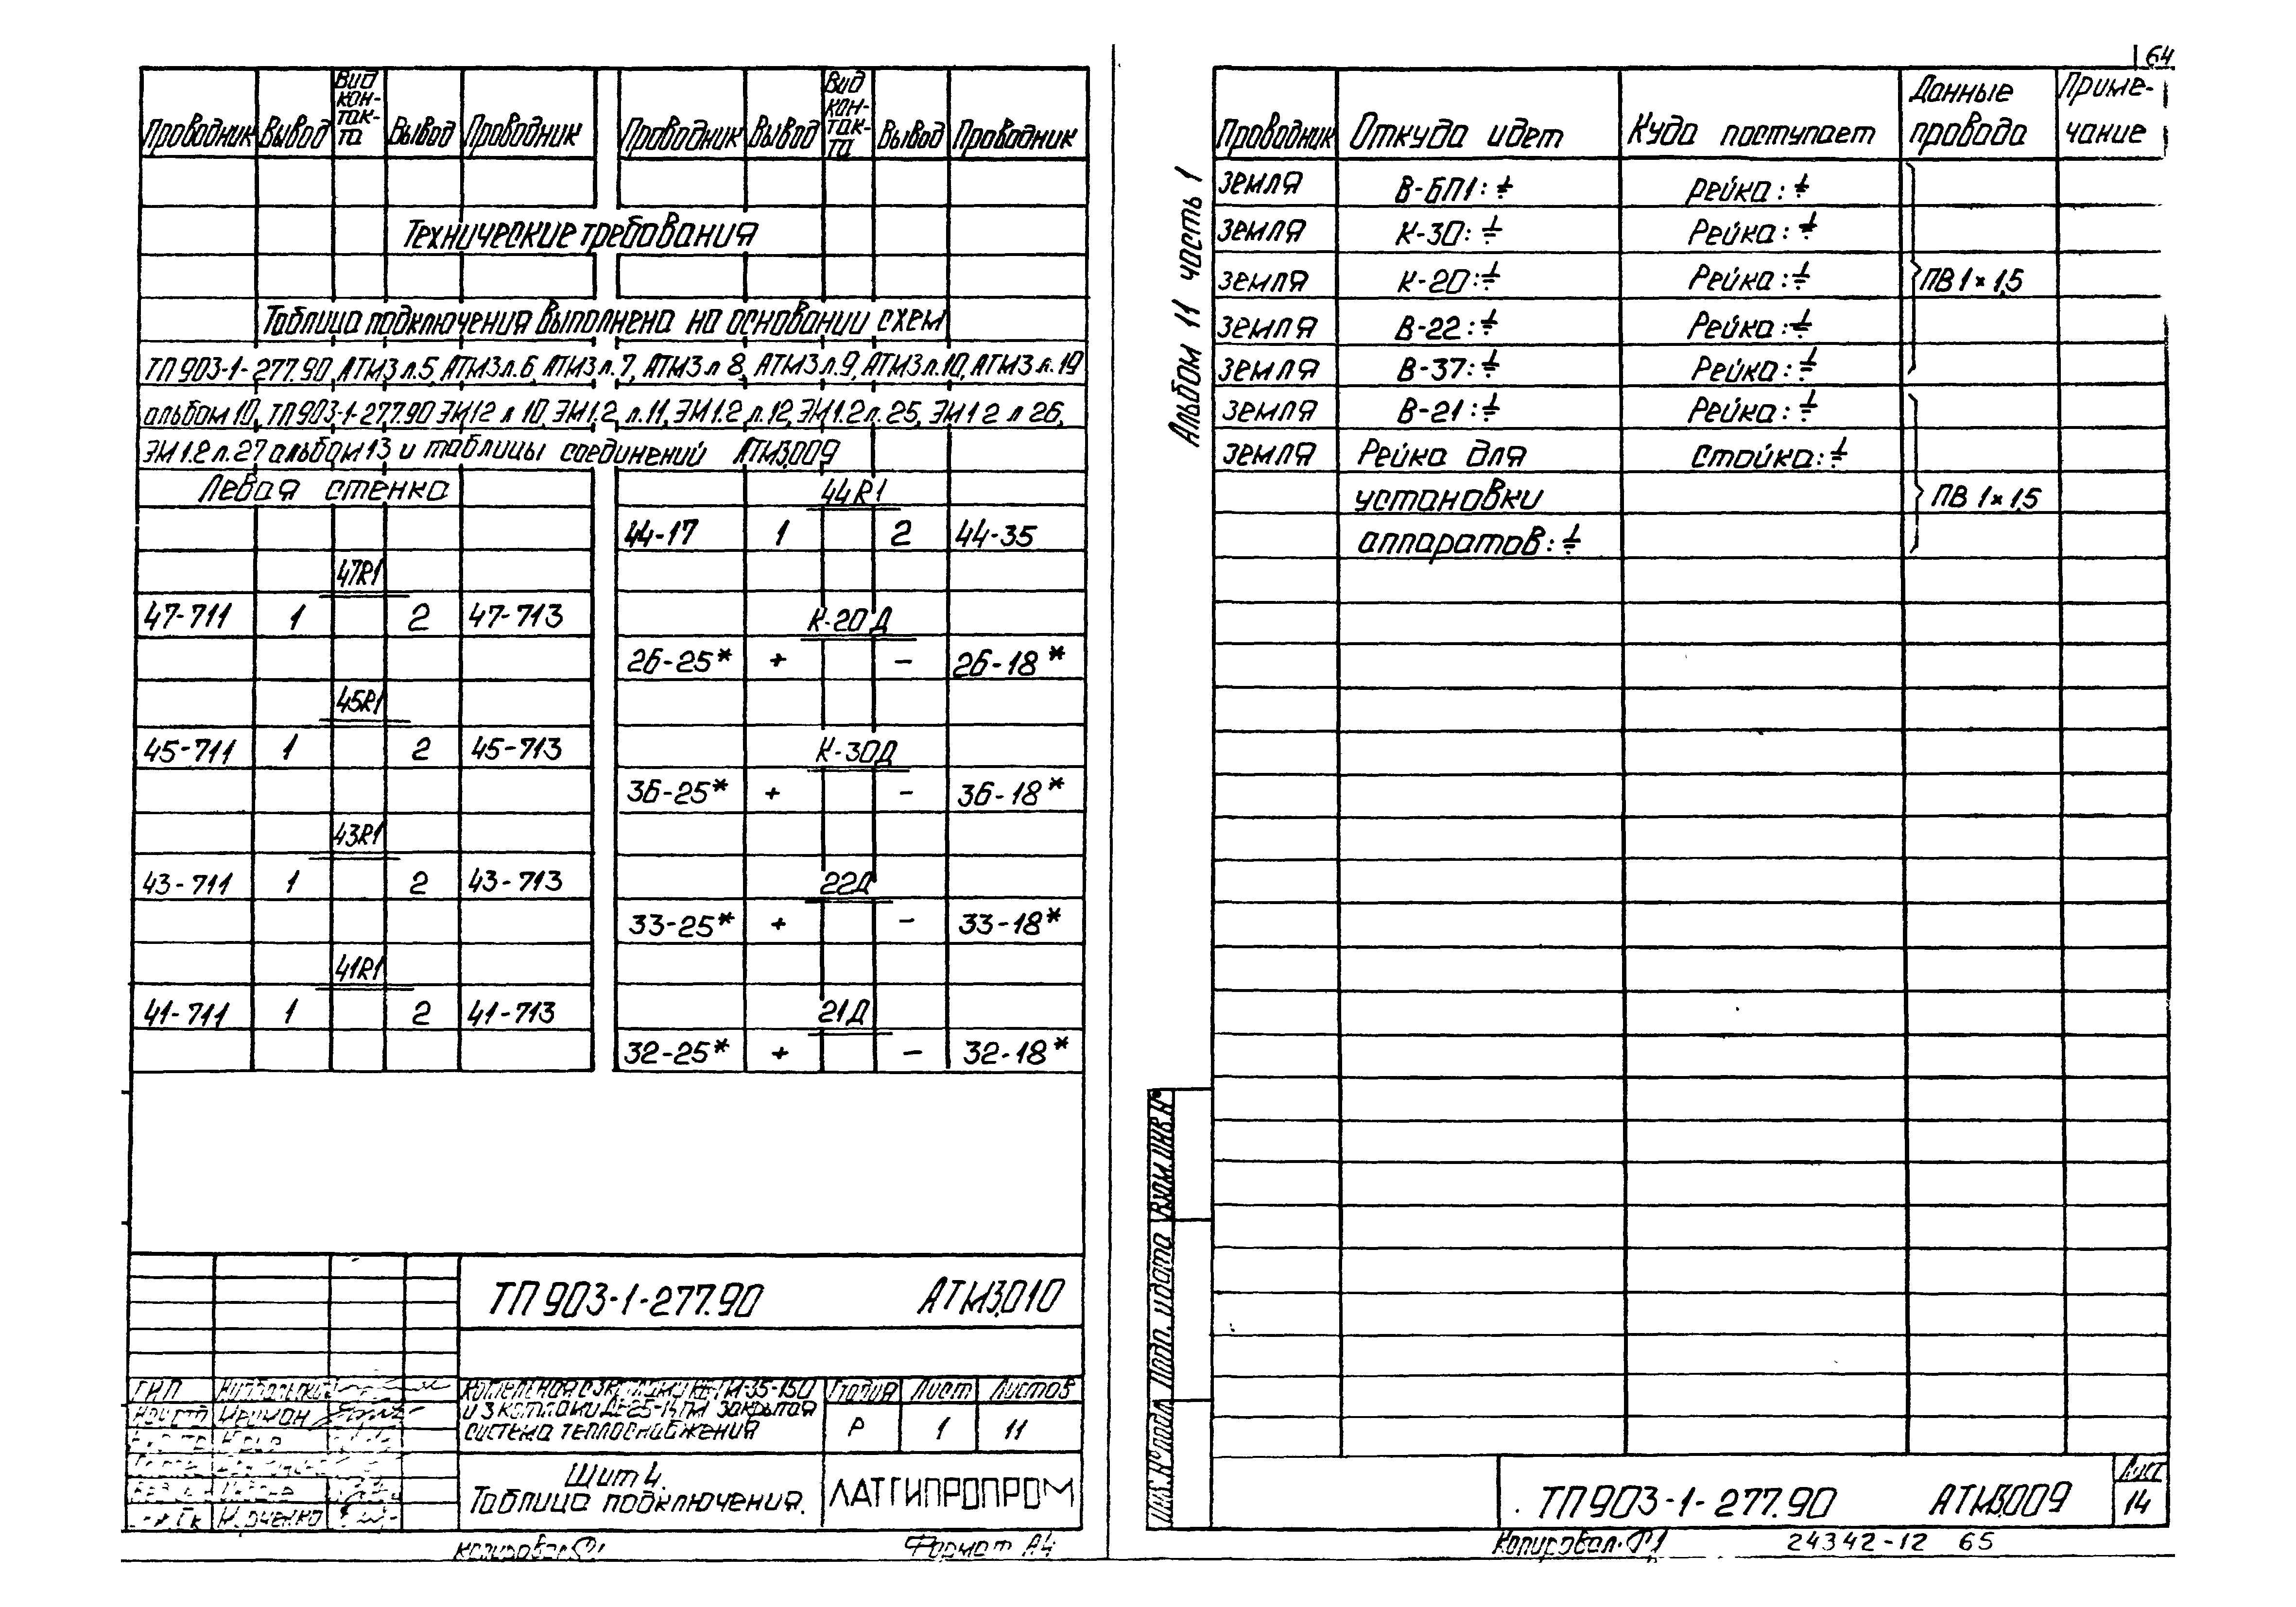 64
Проводник Вывод Вид кон-так-та Вывод Проводник Проводник Вывод Вид кон-так-та Вывод Проводник
Технические требования
Таблица подключения выполнена на основании схем
ТП 903-1-277.90 АТМ3 л.5, АТМ3 л.6, АТМ3 л.7, АТМ3 л 8, АТМ3 л.9, АТМ3 л.10, АТМ3 л.19
альбом 10, ТП903-1-277.90 ЭМ1.2 л 10, ЭМ1.2 л.11, ЭМ1.2 л.12, ЭМ1.2 л. 25, ЭМ1 2 л 26,
ЭМ1.2 л.27 альбом 13 и таблицы соединений АТМ3.009
Левая стенка
47R1
47-711 1 2 47-713
45R1
45-711 1 2 45-713
43R1
43-711 1 2 43-713
41R1
41-711 1 2 41-713
44R1
44-17 1 2 44-35
К-20Д
2б-25* + - 2б-18*
К-30Д
3б-25* + - 3б-18*
22Д
33-25* + - 33-18*
21Д
32-25* + - 32-18*
ТП 903-1-277.90 АТМ3.010
ГИП
Ирчман
Юрченко
и 3 котлами ДЕ-25-14ГМ закрытая
система теплоснабжения
Стадия Лист Листов
Р 1 11
Щит 4.
Таблица подключения.
ЛАТГИПРОПРОМ
Копировал
Формат А4
Альбом 11 часть 1
Проводник Откуда идет Куда поступает Данные провода Приме-чание
земля В-БП1:⏚ рейка:⏚
земля К-30:⏚ Рейка:⏚
земля К-20:⏚ Рейка:⏚ ПВ 1×1,5
земля В-22:⏚ Рейка:⏚
земля В-37:⏚ Рейка:⏚
земля В-21:⏚ Рейка:⏚
земля Рейка для стойка:⏚
установки ПВ 1×1,5
аппаратов:⏚
Инв.№подл. Подп. и дата Взам.инв.№
ТП903-1-277.90 АТМ3.009
Лист
14
Копировал.
24342-12 65